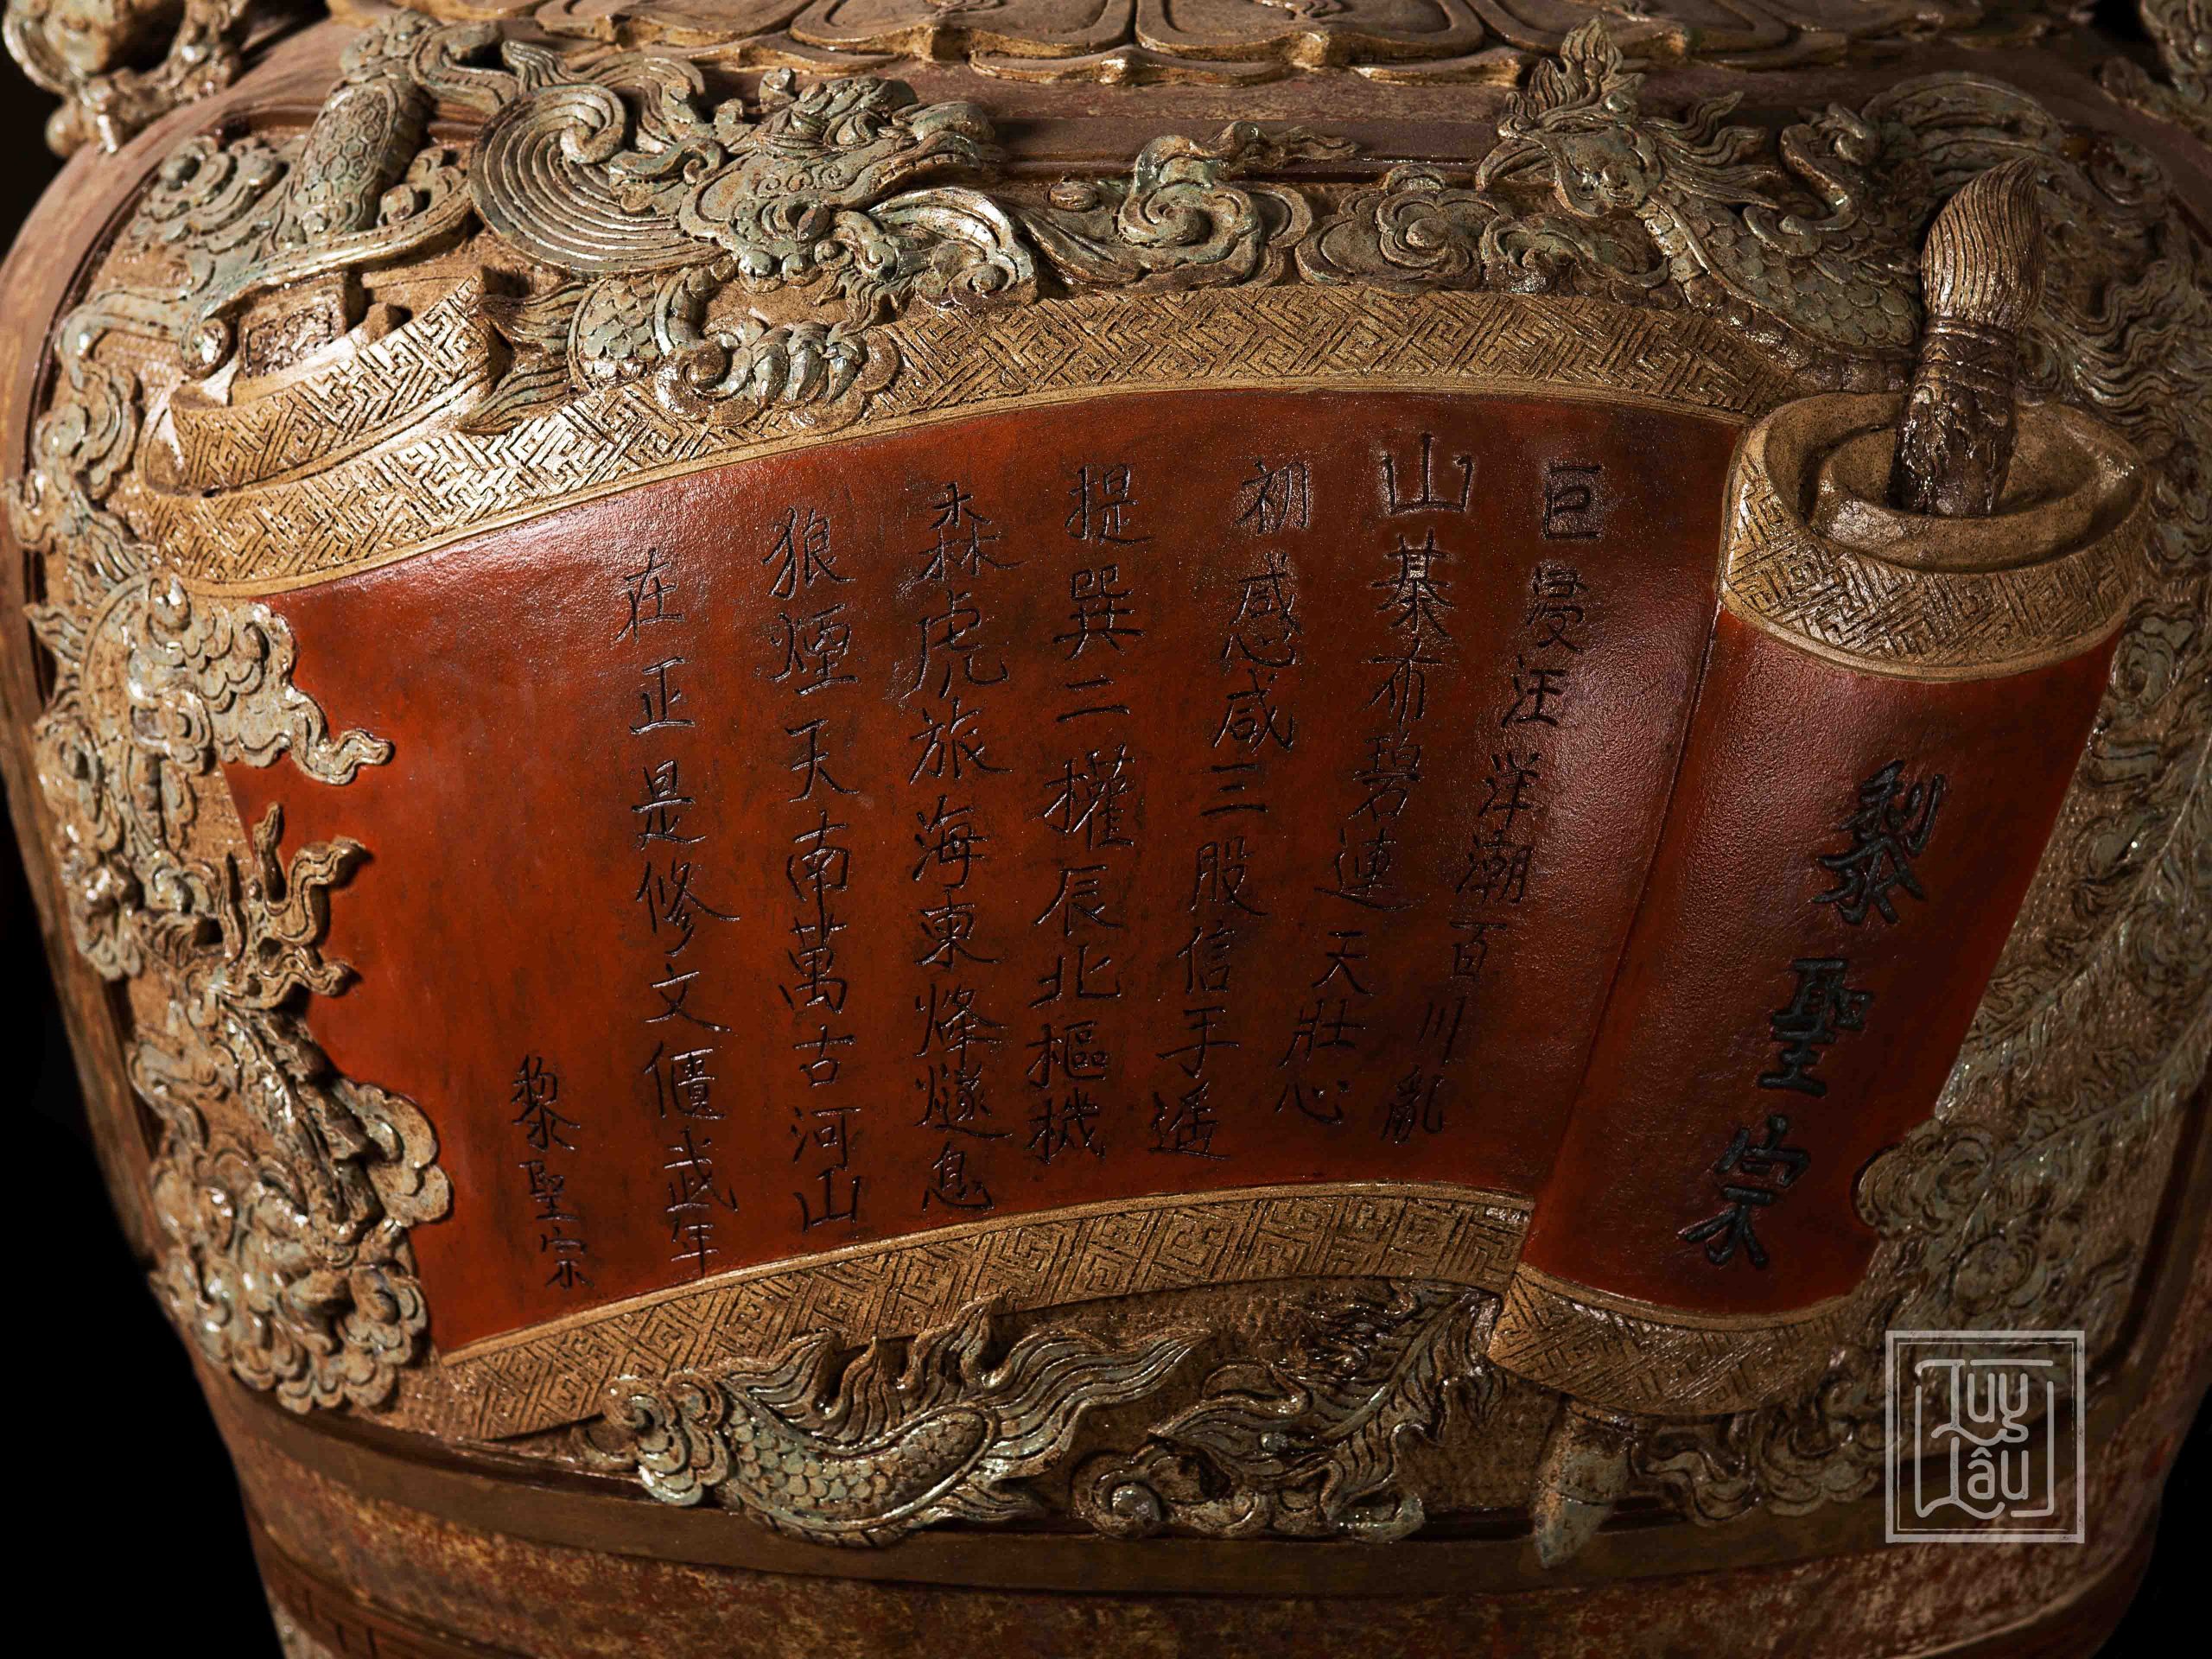 黎聖宗
巨浸汪洋潮百川亂
山棊布碧連天壯心
初感咸三股信手遙
提巽二權辰北樞機
森虎旅海東烽燧息
狼煙天南萬古河山
在正是修文偃武年
黎聖宗
Luy Lâu